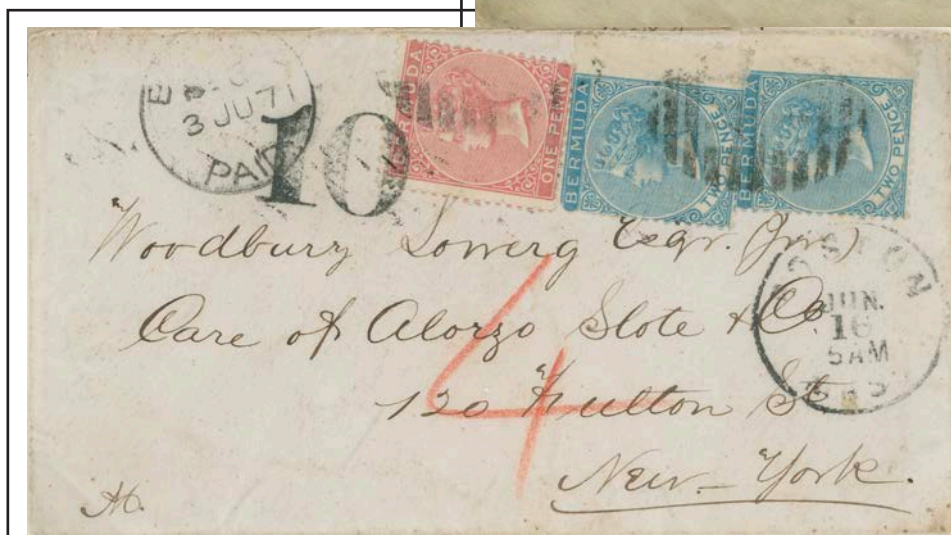 3 JU 71
PAID
10
BERMUDA
ONE PENNY
BERMUDA
TWO PENCE
BERMUDA
TWO PENCE
Woodbury Lowery Esqr. (Jnr)
Care of Alonzo Slote & Co.
120 Fulton St
New-York.
4
BOSTON
JUN.
16
5AM